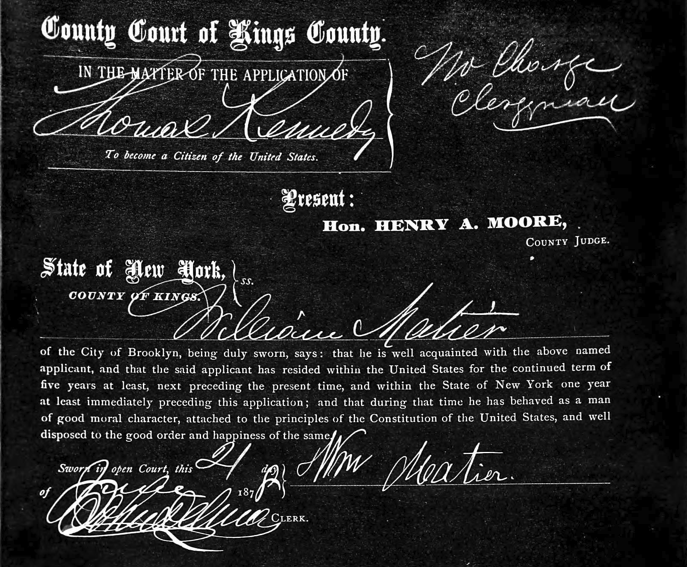 County Court of Kings County.
No Charge
IN THE MATTER OF THE APPLICATION OF
Clergyman
Thomas Kennedy
To become a Citizen of the United States.
Present:
Hon. HENRY A. MOORE,
COUNTY JUDGE.
State of New York,
COUNTY OF KINGS.
} ss.
William Matier
of the City of Brooklyn, being duly sworn, says: that he is well acquainted with the above named
applicant, and that the said applicant has resided within the United States for the continued term of
five years at least, next preceding the present time, and within the State of New York one year
at least immediately preceding this application; and that during that time he has behaved as a man
of good moral character, attached to the principles of the Constitution of the United States, and well
disposed to the good order and happiness of the same.
Sworn in open Court, this 21 day
Wm Matier.
of June 187
CLERK.